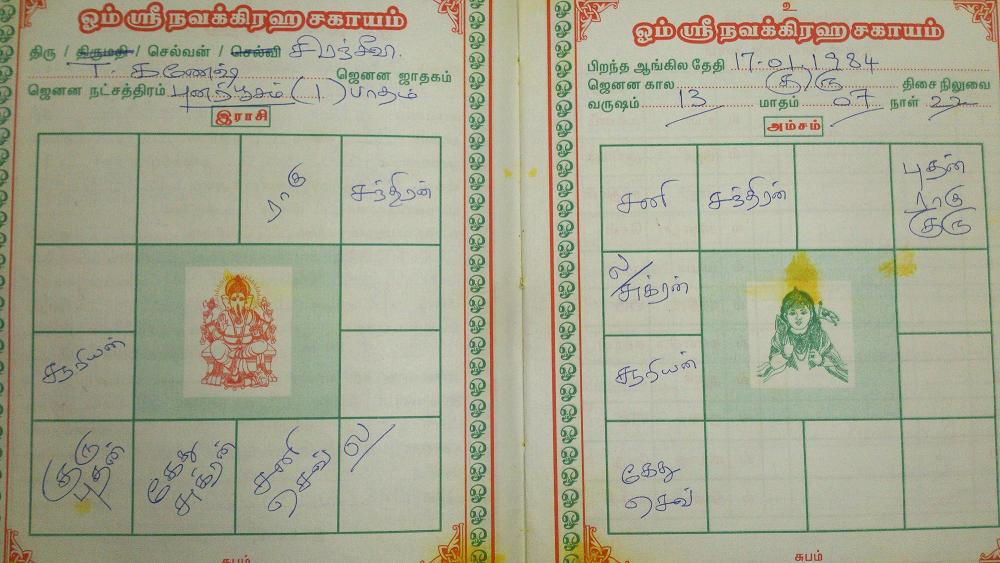 ஓம் ஸ்ரீ நவக்கிரஹ சகாயம்
திரு / திருமதி / செல்வன் / செல்வி சிரஞ்சீவி.
T. கணேஷ் ஜெனன ஜாதகம்
ஜெனன நட்சத்திரம் புனர்பூசம் (1) பாதம்
இராசி
ராகு
சந்திரன்
சூரியன்
குரு
புதன்
கேது
சுக்ரன்
சனி
செவ்
ல/
சுபம்
உ
ஓம் ஸ்ரீ நவக்கிரஹ சகாயம்
பிறந்த ஆங்கில தேதி 17.01.1984
ஜெனன கால (குரு) திசை நிலுவை
வருஷம் 13 மாதம் 07 நாள் 22
அம்சம்
சனி
சந்திரன்
புதன்
ராகு
குரு
ல/
சுக்ரன்
சூரியன்
கேது
செவ்
சுபம்